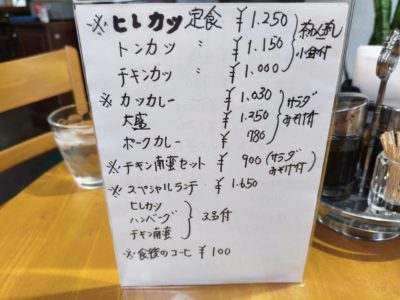 ※ヒレカツ定食 ¥1.250
トンカツ 〃 ¥1.150
チキンカツ 〃 ¥1.000
茶わんむし
小鉢付
※カツカレー ¥1.030
大盛 ¥1.250
ポークカレー ¥780
サラダ
みそ汁付
※チキン南蛮セット ¥900(サラダ
みそ汁付
※スペシャルランチ ¥1.650
ヒレカツ
ハンバーグ
チキン南蛮
※食後のコーヒ ¥100